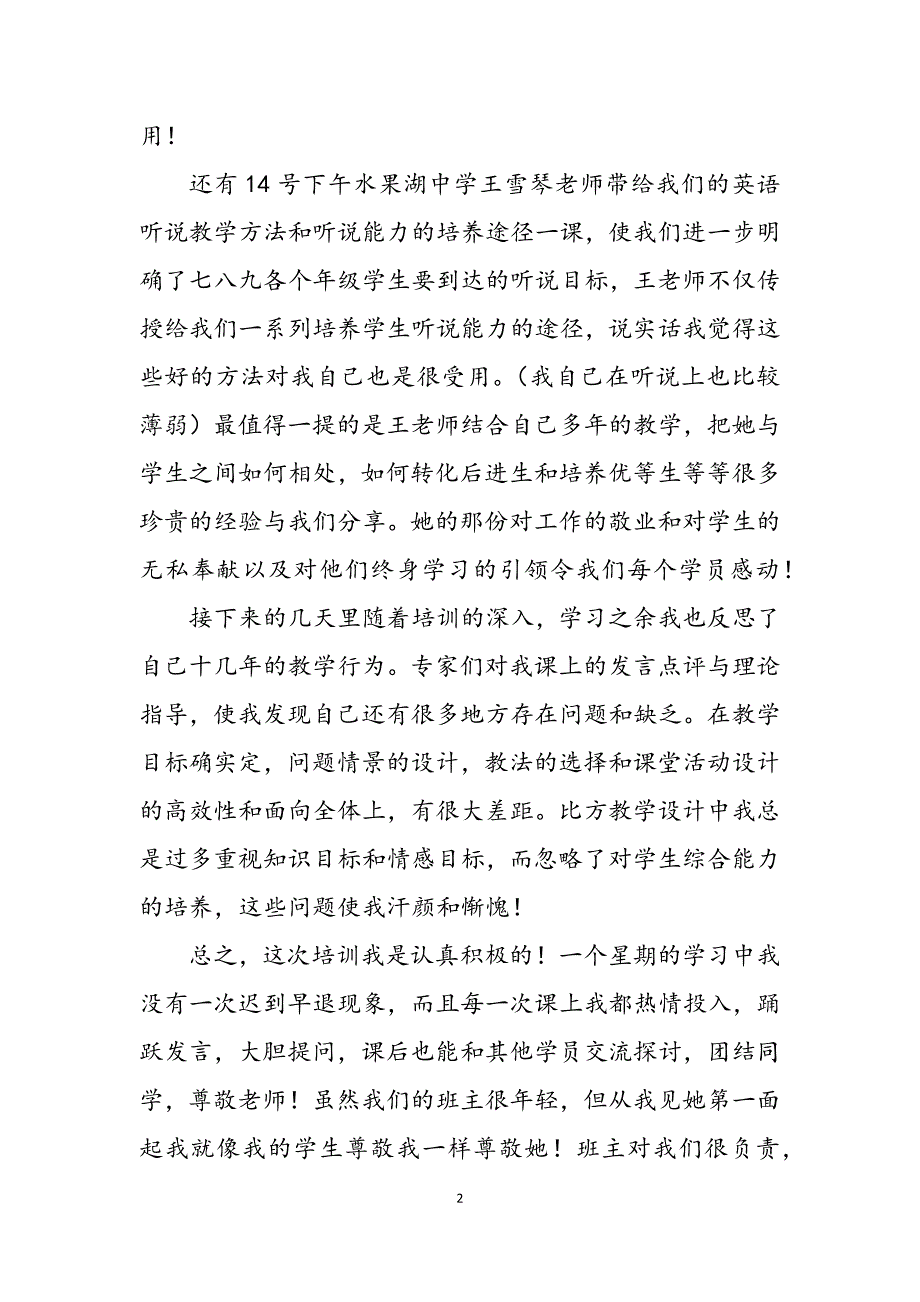 用！
还有 14 号下午水果湖中学王雪琴老师带给我们的英语
听说教学方法和听说能力的培养途径一课，使我们进一步明
确了七八九各个年级学生要到达的听说目标，王老师不仅传
授给我们一系列培养学生听说能力的途径，说实话我觉得这
些好的方法对我自己也是很受用。（我自己在听说上也比较
薄弱）最值得一提的是王老师结合自己多年的教学，把她与
学生之间如何相处，如何转化后进生和培养优等生等等很多
珍贵的经验与我们分享。她的那份对工作的敬业和对学生的
无私奉献以及对他们终身学习的引领令我们每个学员感动！
接下来的几天里随着培训的深入，学习之余我也反思了
自己十几年的教学行为。专家们对我课上的发言点评与理论
指导，使我发现自己还有很多地方存在问题和缺乏。在教学
目标确实定，问题情景的设计，教法的选择和课堂活动设计
的高效性和面向全体上，有很大差距。比方教学设计中我总
是过多重视知识目标和情感目标，而忽略了对学生综合能力
的培养，这些问题使我汗颜和惭愧！
总之，这次培训我是认真积极的！一个星期的学习中我
没有一次迟到早退现象，而且每一次课上我都热情投入，踊
跃发言，大胆提问，课后也能和其他学员交流探讨，团结同
学，尊敬老师！虽然我们的班主很年轻，但从我见她第一面
起我就像我的学生尊敬我一样尊敬她！班主对我们很负责，
2